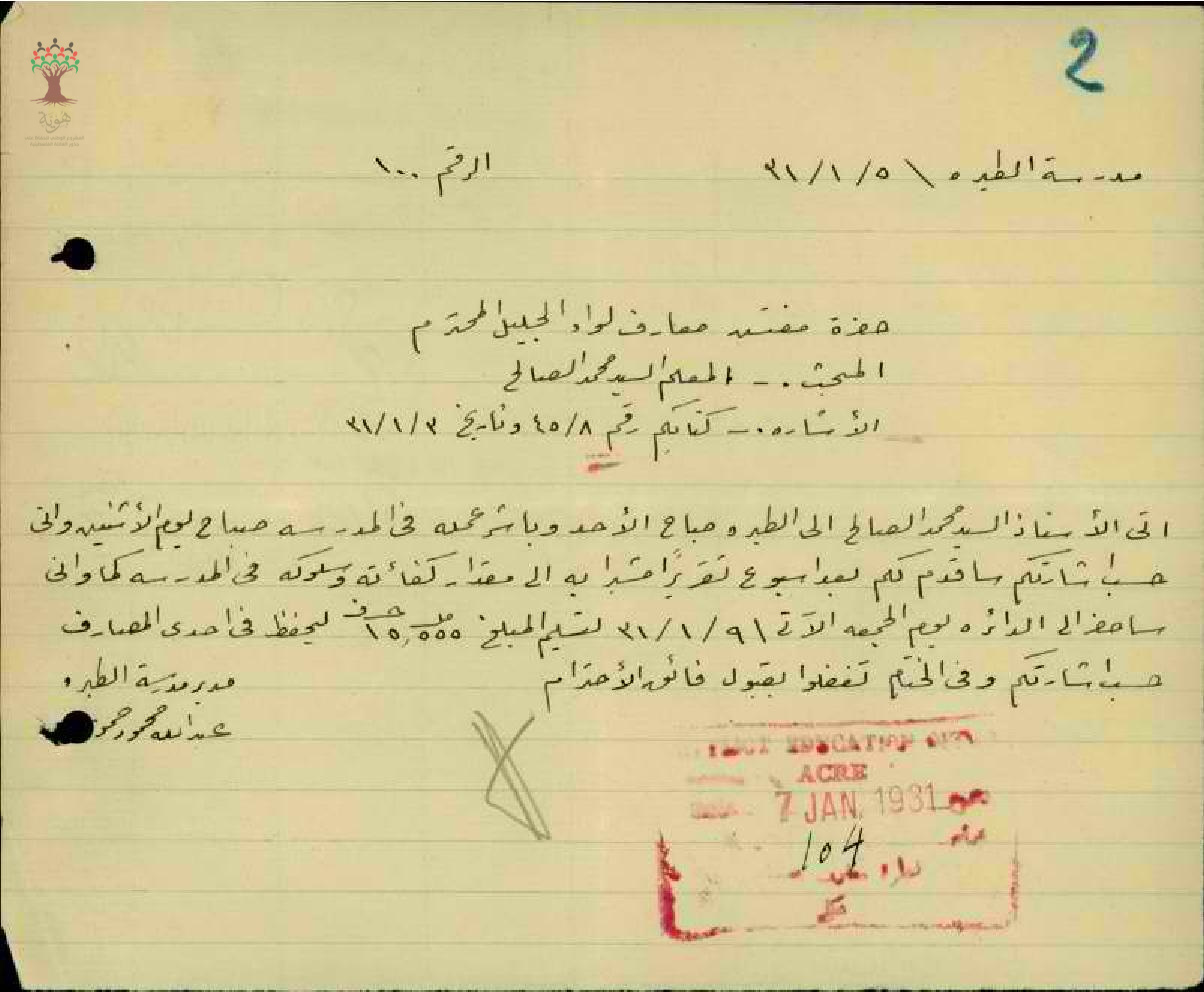 2
هوية
مدرسة الطيره \ ٥/١/٣١ الرقم ١٠٠
حضرة مفتش معارف لواء الجليل المحترم
المبحث .- المعلم السيد محمد الصالح
الأشاره .- كتابكم رقم ٤٥/٨ وتاريخ ٣/١/٣١
اتى الأستاذ السيد محمد الصالح الى الطيره صباح الأحد وباشر عمله فى المدرسه صباح يوم الأثنين وانى
حسب اشارتكم سأقدم لكم بعد اسبوع تقريرًا مشيرا به الى مقدار كفائته وسلوكه فى المدرسه كما وانى
سأحضر الى الدائره يوم الجمعه الآتى \ ٩/١/٣١ لتسليم المبلغ ١٥,٥٥٥ ليحفظ فى احدى المصارف
حسب اشارتكم وفى الختام تفضلوا بقبول فائق الأحترام
مدير مدرسة الطيره
عبدالله محمود
EDUCATION
ACRE
7 JAN. 1931
104